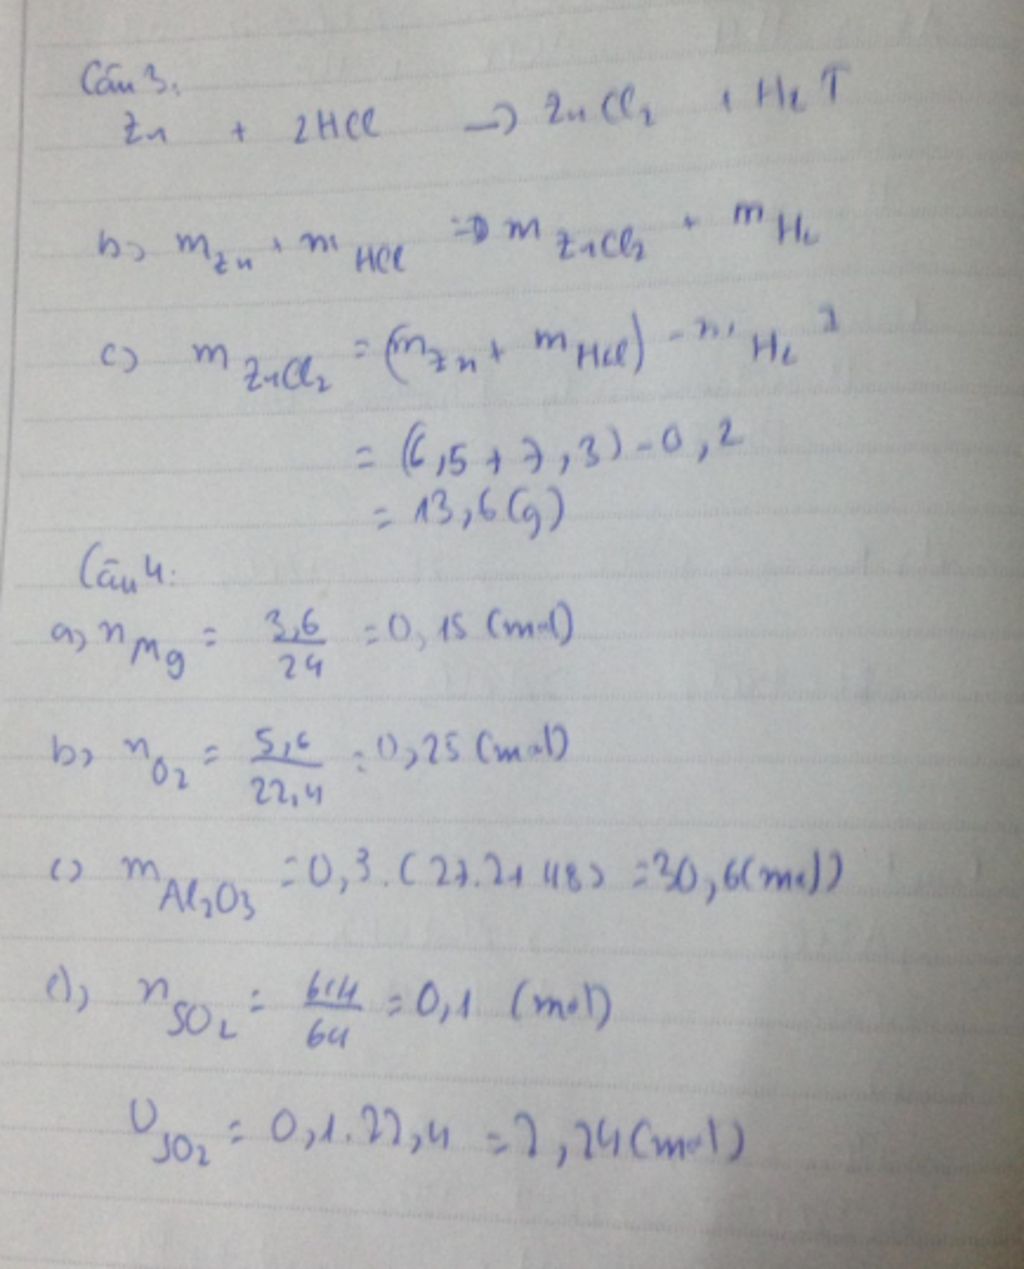 Câu 3:
Zn + 2HCl → ZnCl₂ + H₂ ↑
b) m Zn + m HCl => m ZnCl₂ + m H₂
c) m ZnCl₂ = (m Zn + m HCl) - m H₂
= (6,5 + 7,3) - 0,2
= 13,6 (g)
Câu 4:
a) n Mg = 3,6/24 = 0,15 (mol)
b) n O₂ = 5,6/22,4 = 0,25 (mol)
c) m Al₂O₃ = 0,3.(27.2+48) = 30,6 (mol)
d) n SO₂ = 6,4/64 = 0,1 (mol)
V SO₂ = 0,1.22,4 = 2,24 (mol)